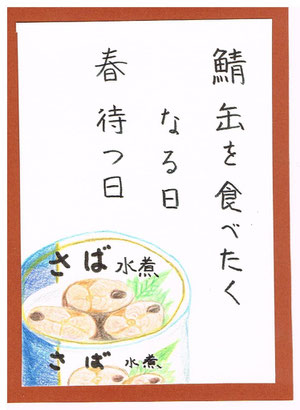 鯖缶を食べたく
なる日
春待つ日
さば水煮
さば水煮